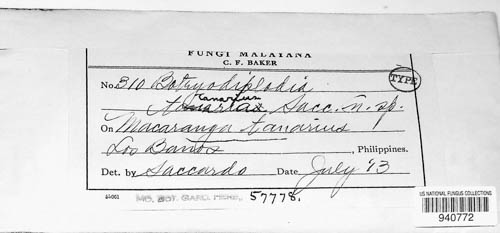 FUNGI MALAYANA
C. F. BAKER
No. 310 Botryodiplodia
tanarium
Sacc. n. sp.
TYPE
On Macaranga tanarius
Los Banos, Philippines.
Det. by Saccardo Date July '13
MO. BOT. GARD. HERB. 57778.
US NATIONAL FUNGUS COLLECTIONS
940772